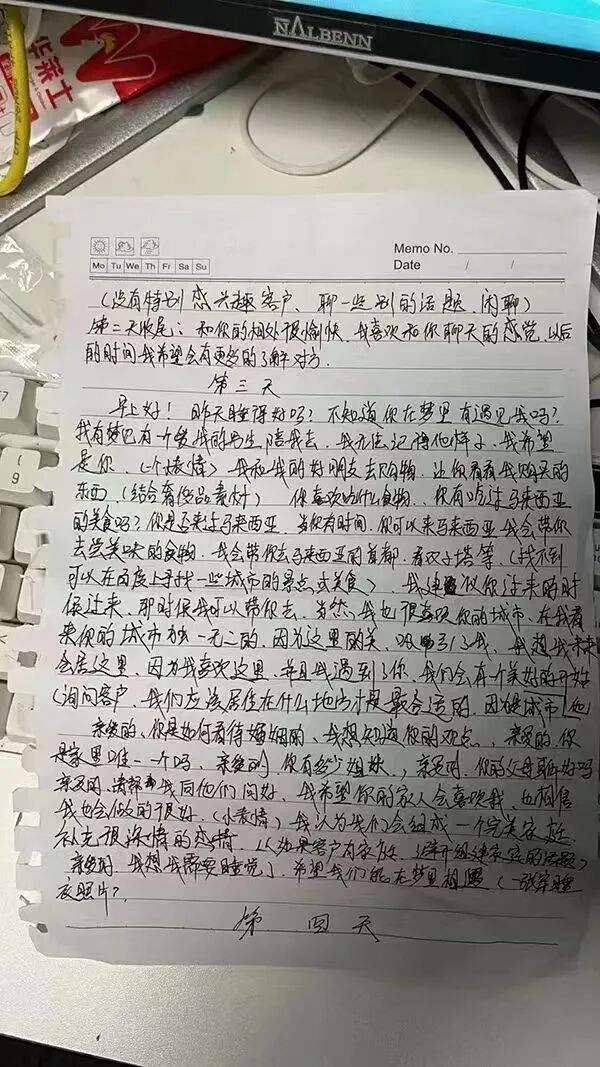 NALBENN
华莱士
Memo No.
Mo Tu We Th Fr Sa Su
Date / /
(没有特别感兴趣客户、聊一些别的话题、闲聊)
第二天收尾:和你的相处很愉快、我喜欢和你聊天的感觉、以后
的时间我希望会有更多的了解对方.
第三天
早上好!昨天睡得好吗?不知道你在梦里有遇见我吗?
我有梦见有一个 我的男生陪我去、我无法记得他样子、我希望
是你、(一个表情)我和我的好朋友去购物、让你看看我购买的
东西、(结合奢侈品素材) 你喜欢吃什么食物、你有吃过马来西亚
的美食吗?你是否来过马来西亚、当你有时间、你可以来马来西亚我会带你
去尝美味的食物、我会带你去马来西亚的首都、看双子塔等、(找不到
可以在百度上寻找一些城市的景点或美食)、我建议你过来的时
候过来、那时候我可以带你去、当然、我也很喜欢你的城市、在我看
来你的城市独一无二的、因为这里的美、吸引了我、我想我未来
会居这里、因为我喜欢这里、并且我遇到了你、我们会有一个美好的开始
(询问客户、我们应该居住在什么地方才是最合适的、因 城市
亲爱的、你是如何看待婚姻的、我想知道你的观点、亲爱的、你
是家里唯一一个吗、亲爱的、你有多少姐妹、亲爱的、你的父母都好吗
亲爱的、请帮我同他们问好、我希望你的家人会喜欢我、也相信
我也会做的很好、(小表情)我认为我们会组成一个完美家庭
补充很深情的感情、(如果客户有家庭、避开组建家庭的话题)
亲爱的、我想我需要睡觉了、希望我们能在梦里相遇(一张穿睡
衣照片?
第四天